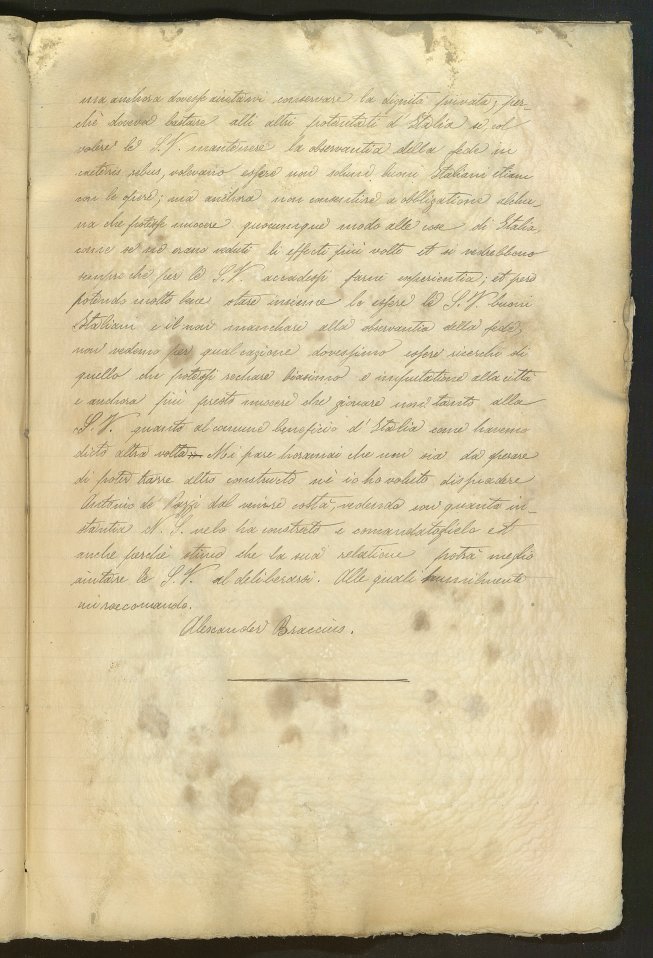 ma anchora dovesse aiutarvi conservare la dignità privata; per-
chè doveva bastare alli altri potentati d'Italia si, col
volere le S. V. mantenere la observantia della fede in
caeteris rebus, volevano essere non solum buoni Italiani etiam
con le opere; ma anchora non consentire a obligatione alchu-
na che potesse nuocere quocumque modo alle cose di Italia,
come se ne erano veduti li effecti più volte et si vedrebbono
sempre che per le S. V. accadessi farne experientia; et però
potendo molto bene stare insieme lo essere le S. V. buoni
Italiani e il non manchare alla observantia della fede,
non vedemo per qual cagione dovessimo essere ricerchi di
quello che potessi rechare biasimo e imputatione alla città
e anchora più presto nuocere che giovare non tanto alla
S. V. quanto al comune beneficio d'Italia come havemo
dicto altra volta. Mi pare horamai che non sia da sperare
di poter trarre altro constructo nè io ho voluto dissuadere
Antonio de Pazzi dal venire costà, vedendo con quanta in-
stantia N. S. velo ha constretto e comandatoglielo et
anche perchè stimo che la sua relatione potrà meglio
aiutare le S. V. al deliberarsi. Alle quali humilmente
mi raccomando.
Alexander Braccius.